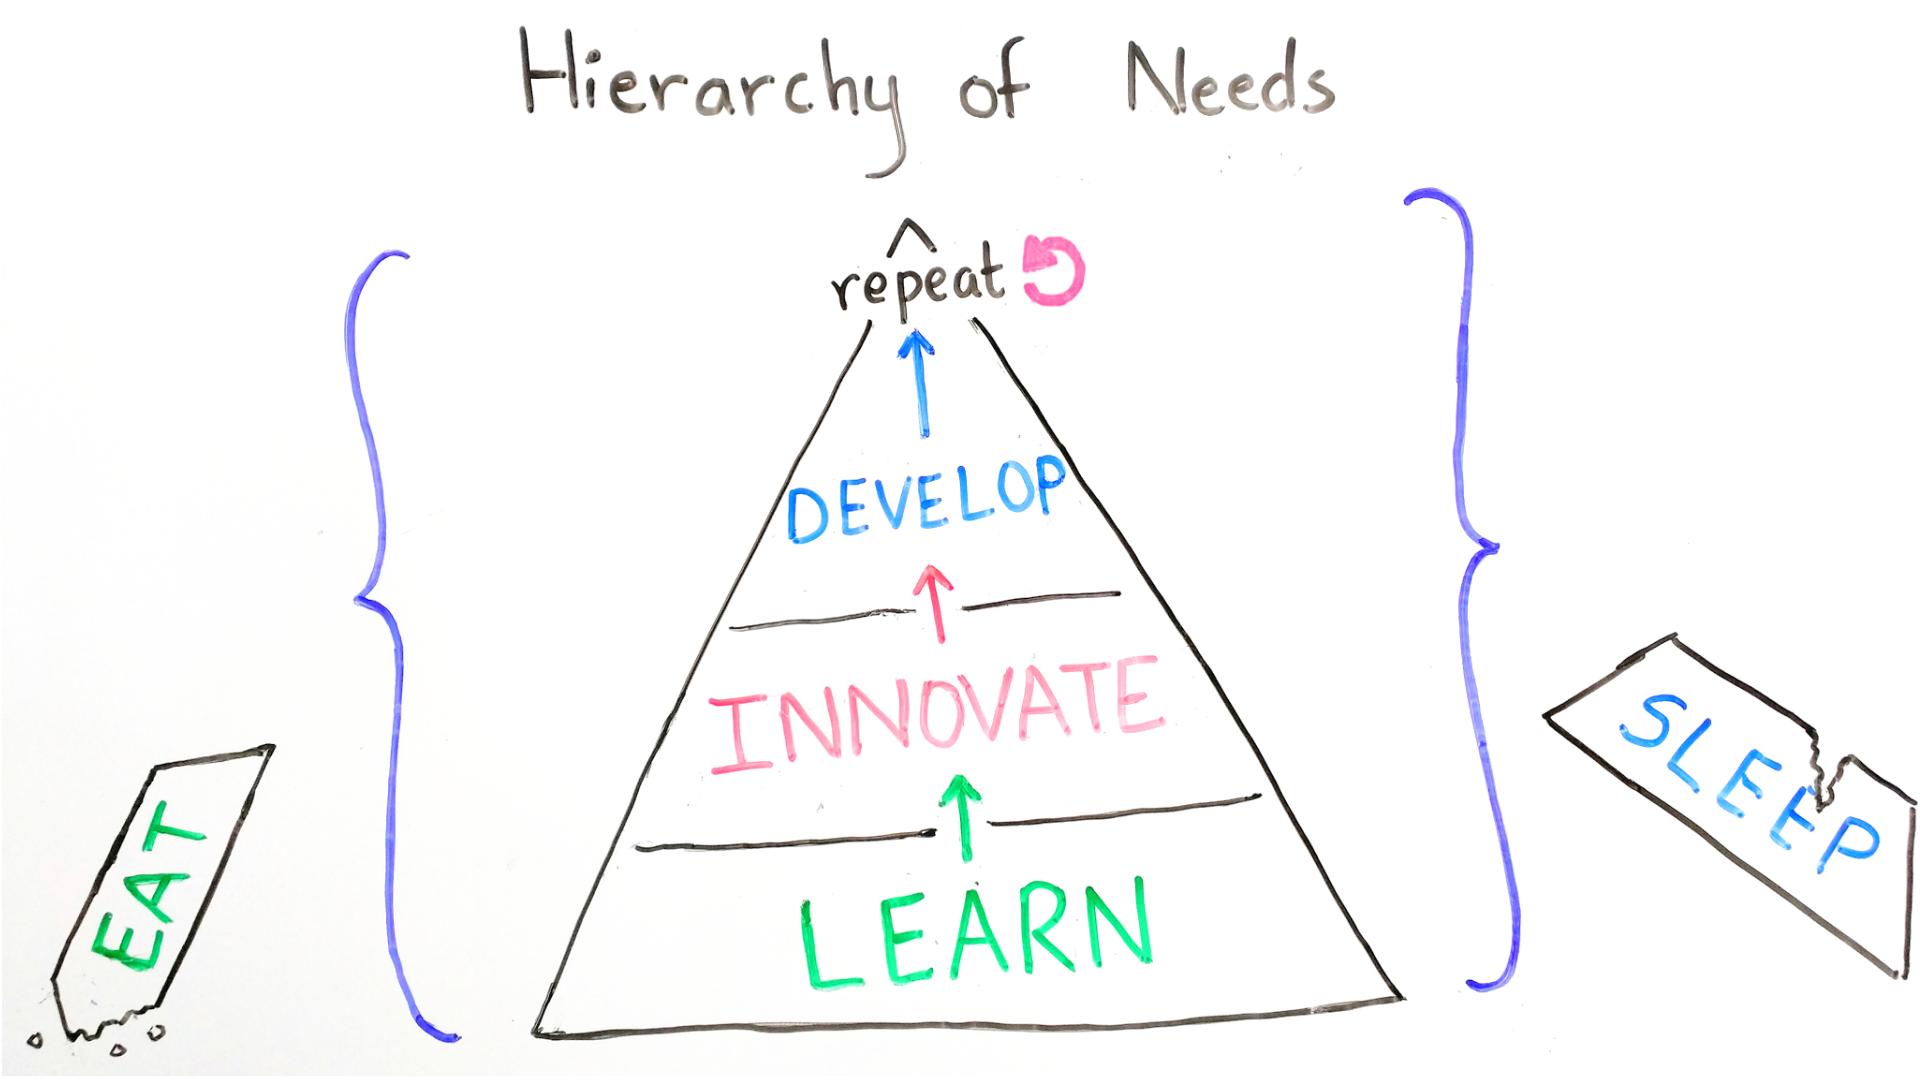 Hierarchy of Needs
repeat
DEVELOP
INNOVATE
LEARN
EAT
SLEEP